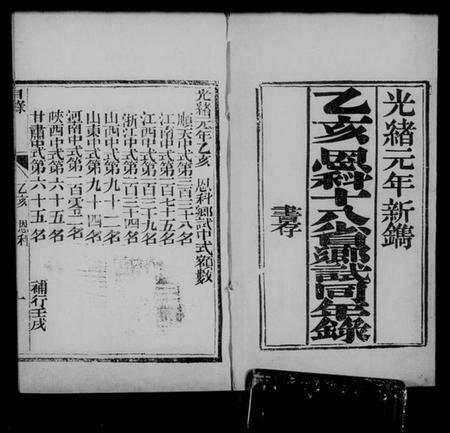 光緒元年新鐫
乙亥恩科十八省鄉試同年錄
書存
光緒元年乙亥　恩科鄉試中式名數
順天中式第二百三十八名
江南中式第一百七十五名
江西中式第一百三十九名
浙江中式第一百三十四名
山西中式第九十一名
山東中式第九十四名
河南中式第一百零二名
陝西中式第六十五名
甘肅中式第六十五名
補行壬戌
目錄
乙亥　恩科
一